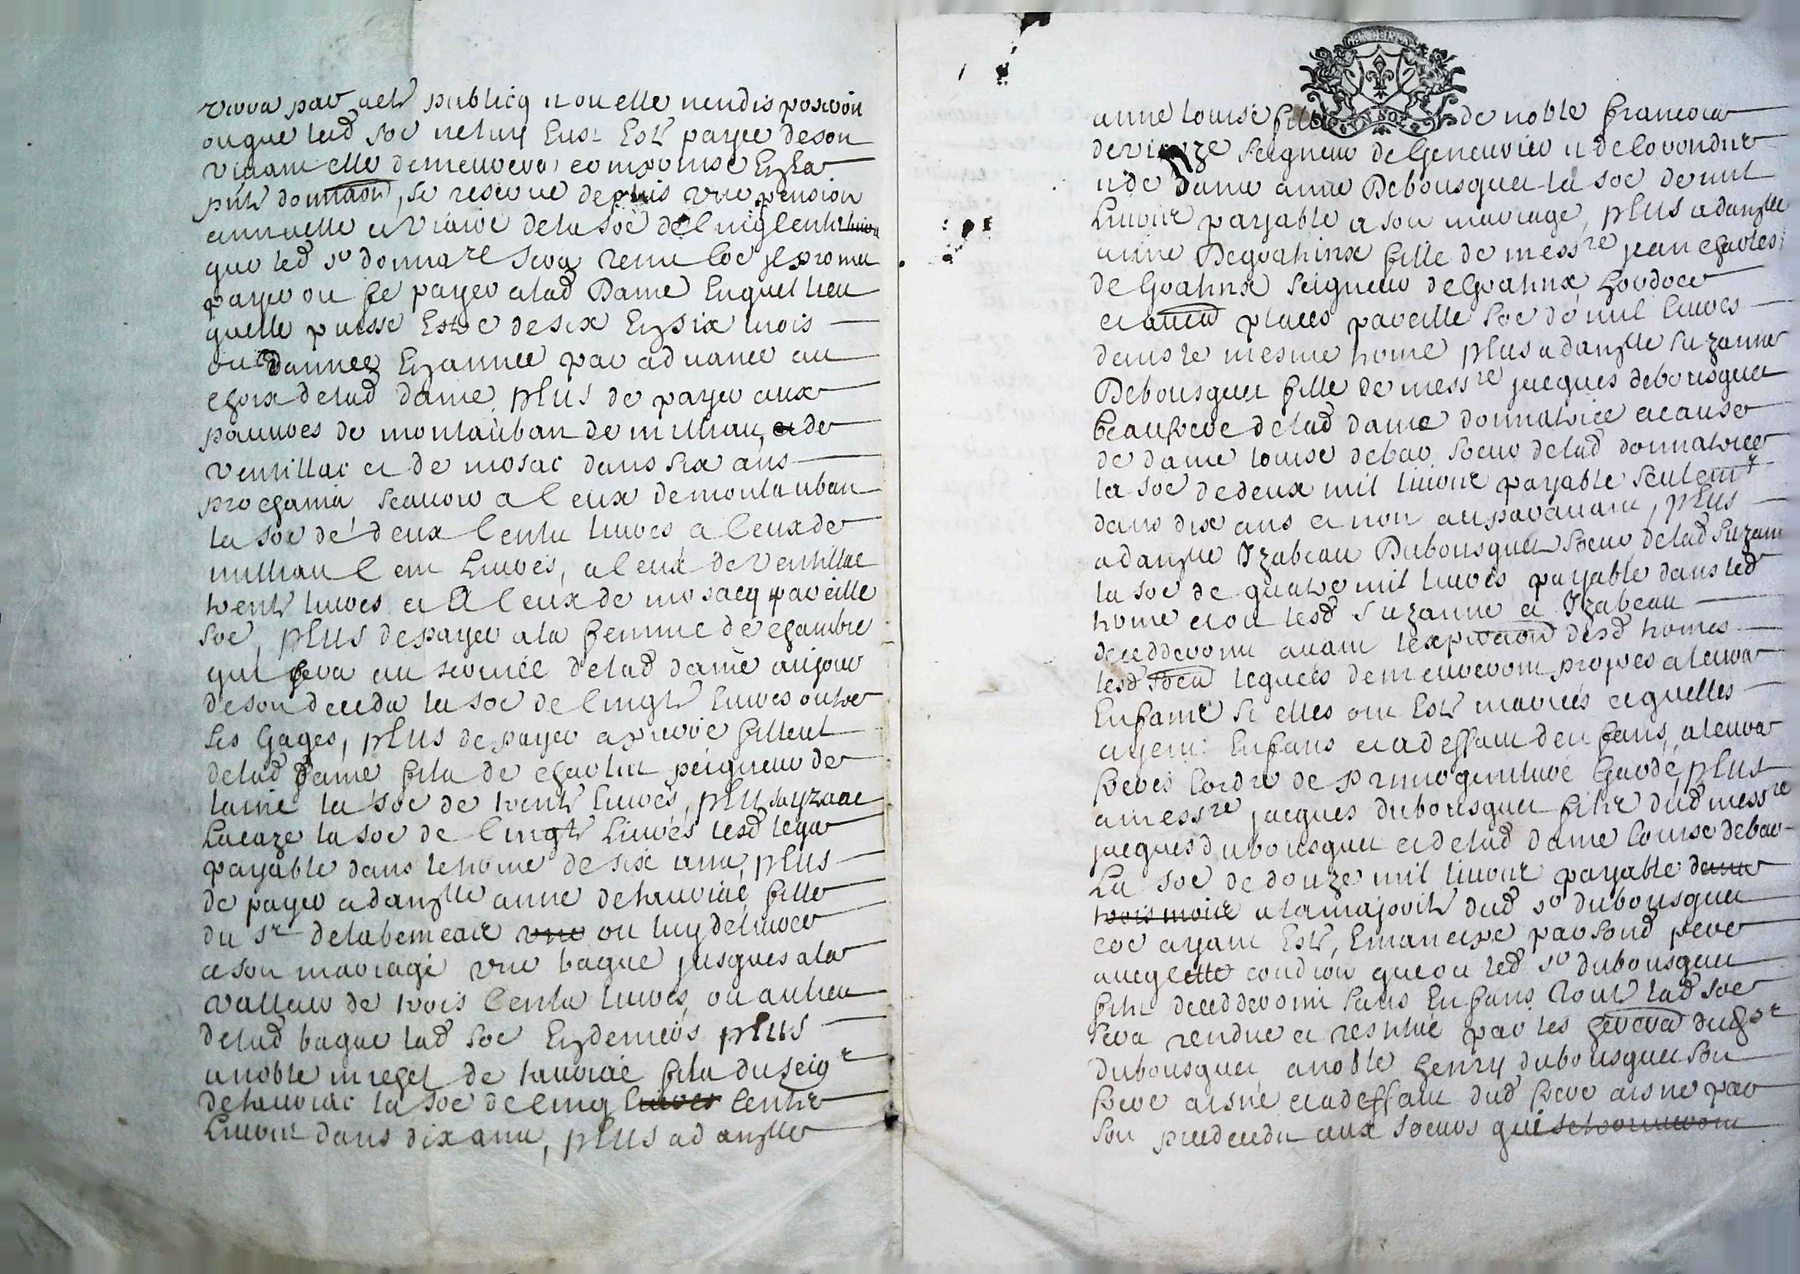 vivra par acte publicq et ou elle nen disposeroit
ou que lad soe ne luy eust esté payee de son
vivant elle demeurera comprinse en la
pnte donnaon, se reserve de plus une pension
annuelle et viaire de la soe de cinq cents livres
que led sr donnare sera tenu coe il promet
payer ou fe payer a lad Dame en quel lieu
quelle puisse estre de six en six mois
ou dannee en annee par advance au
choix de lad dame, plus de payer aux
pauvres de montauban de milhau, et de
ventillac et de mosac dans six ans
prochains scavoir a ceux de montauban
la soe de deux cents livres a ceux de
milhau cent livres, a ceux de ventillac
trente livres et a ceux de mosacq pareille
soe, plus de payer a la femme de chambre
qui sera au service de lad dame au jour
de son deceds la soe de cinqte livres outre
ses gages, plus de payer a pierre filleul
de lad dame fils de charles peigneur de
laine la soe de trente livres, plus a yzaac
Lacaze la soe de cinqte livres lesd legats
payable dans le terme de six ans, plus
de payer a danzlle anne de tauriac fille
du sr de labemeair une ou luy delivrer
a son mariage une bague jusques a la
valleur de trois cents livres, ou au lieu
de lad bague lad soe en deniers plus
a noble michel de tauriac fils du seigr
de tauriac la soe de cinq livres cents
Livres dans dix ans, plus a danzlle
anne louise fille de noble francois
de vieuze seigneur de Genevrier et de lovondur
et de dame anne Debousquet la soe de mil
Livres payable a son mariage, plus a danzlle
anne Degoahinx fille de messre jean charles
de Goahinx seigneur de Goahinx hordoce
et autres places pareille soe de mil livres
dans le mesme terme plus a danzlle suzanne
Debousquet fille de messre jacques debousquet
beaufrere de lad dame donnatrice a cause
de dame louise debar soeur de lad donnatrice
la soe de deux mil livres payable seulemt
dans dix ans et non auparavant, plus
a danzlle Izabeau Dubousquet soeur de lad suzanne
la soe de quatre mil livres payable dans led
terme et ou lesd suzanne et Izabeau
decedderont avant lexpiration desd termes
lesd soes leguees demeureront propres a leurs
Enfans si elles ont esté mariées et quelles
ayent Enfans et a deffaut denfans, a leurs
freres l'ordre de primogeniture gardé, plus
a messre jacques dubousquet filz dud messre
jacques dubousquet et de lad dame louise debar
La soe de douze mil livres payable dans
trois mois a la majorité dud sr dubousquet
coe ayant esté Emancipé par sond pere
avec cette condion que ou led sr dubousquet
filz decedderoit sans Enfans toute lad soe
sera rendue et restitué par les heritiers dud sr
dubousquet a noble henry dubousquet son
frere aisné et a deffaut dud frere aisné par
son predeceds aux soeurs qui se trouveront